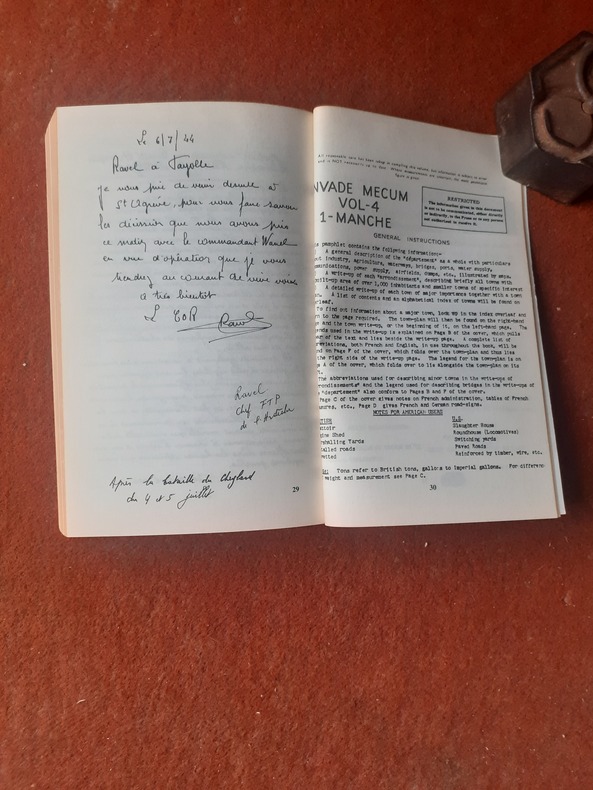 Le 6/7/44
Ravel à Fayolle
je vous prie de venir demain à
St Agrève, pour vous faire savoir
les décision que nous avons pris
ce matin avec le commandant Vanel
en vue d'opération que je vous
tiendrez au courant de vive voix
à très bientôt
Ravel
Ravel
chef FTP
de l'Ardèche
Après la bataille du Cheylard
du 4 et 5 juillet
29
NVADE MECUM
VOL-4
1-MANCHE
RESTRICTED
The information given in this document
is not to be communicated, either directly
or indirectly, to the Press or to any person
not authorized to receive it.
GENERAL INSTRUCTIONS
pamphlet contains the following information:-
A general description of the "département" as a whole with particulars
industry, agriculture, waterways, bridges, ports, water supply,
power supply, airfields, camps, etc., illustrated by maps.
A write-up of each "arrondissement", describing briefly all towns with
built-up area of over 1,000 inhabitants and smaller towns of specific interest
A detailed write-up of each town of major importance together with a town
A list of contents and an alphabetical index of towns will be found on
erleaf.
To find out information about a major town, look up in the index overleaf and
rn to the page required. The town-plan will then be found on the right-hand
and the town write-up, or the beginning of it, on the left-hand page. The
ends used in the write-up is explained on Page B of the cover, which pulls
of the text and lies beside the write-up page. A complete list of
reviations, both French and English, in use throughout the book, will be
on Page F of the cover, which folds over the town-plan and thus lies
the right side of the write-up page. The legend for the town-plan is on
A of the cover, which folds over to lie alongside the town-plan on its
The abbreviations used for describing minor towns in the write-ups of
rondissements" and the legend used for describing bridges in the write-ups of
"département" also conform to Pages B and F of the cover.
Page C of the cover gives notes on French administration, tables of French
etc., Page D gives French and German road-signs.
NOTES FOR AMERICAN USERS
U.S.
attoir Slaughter House
gine Shed Roundhouse (Locomotives)
rshalling Yards Switching yards
talled roads Paved Roads
vetted Reinforced by timber, wire, etc.
Tons refer to British tons, gallons to Imperial gallons. For different
weight and measurement see Page C.
30